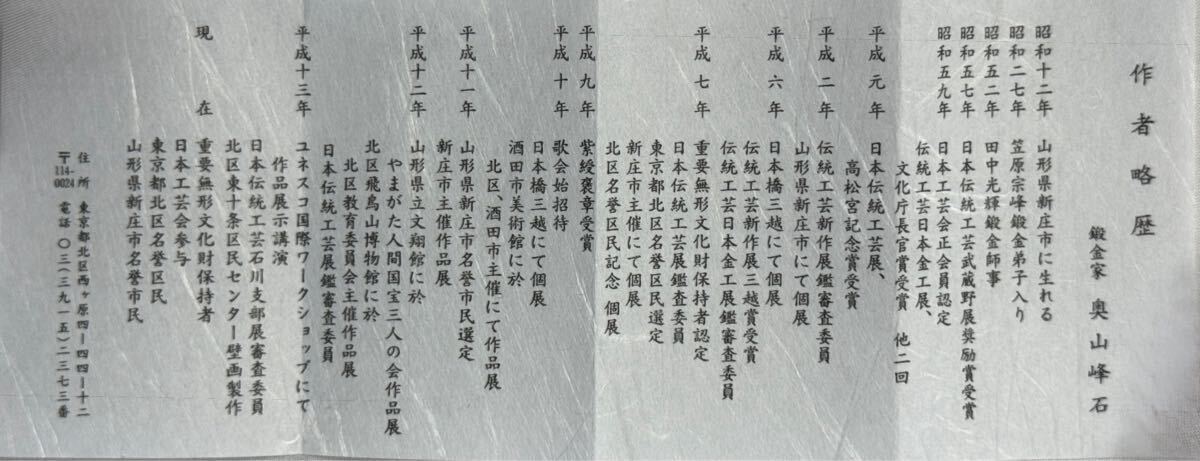 作者略歴
鍛金家 奥山峰石
昭和十二年 山形県新庄市に生れる
昭和二七年 笠原宗峰鍛金弟子入り
昭和五二年 田中光輝鍛金師事
昭和五七年 日本伝統工芸武蔵野展奨励賞受賞
昭和五九年 日本工芸会正会員認定
伝統工芸日本金工展、
文化庁長官賞受賞 他二回
平成元年 日本伝統工芸展、
高松宮記念賞受賞
平成二年 伝統工芸新作展鑑審査委員
山形県新庄市にて個展
平成六年 日本橋三越にて個展
伝統工芸新作展三越賞受賞
伝統工芸日本金工展鑑審査委員
平成七年 重要無形文化財保持者認定
日本伝統工芸展鑑査委員
東京都北区名誉区民選定
新庄市主催にて個展
北区名誉区民記念個展
平成九年 紫綬褒章受賞
平成十年 歌会始招待
日本橋三越にて個展
酒田市美術館に於
北区、酒田市主催にて作品展
平成十一年 山形県新庄市名誉市民選定
新庄市主催作品展
平成十二年 山形県立文翔館に於
やまがた人間国宝三人の会作品展
北区飛鳥山博物館に於
北区教育委員会主催作品展
日本伝統工芸展鑑審査委員
平成十三年 ユネスコ国際ワークショップにて
作品展示講演
日本伝統工芸石川支部展審査委員
北区東十条区民センター壁画製作
現在 重要無形文化財保持者
日本工芸会参与
東京都北区名誉区民
山形県新庄市名誉市民
住所 東京都北区西ヶ原四ー四四ー十二
〒114-0024 電話 〇三(三九一五)二三七三番